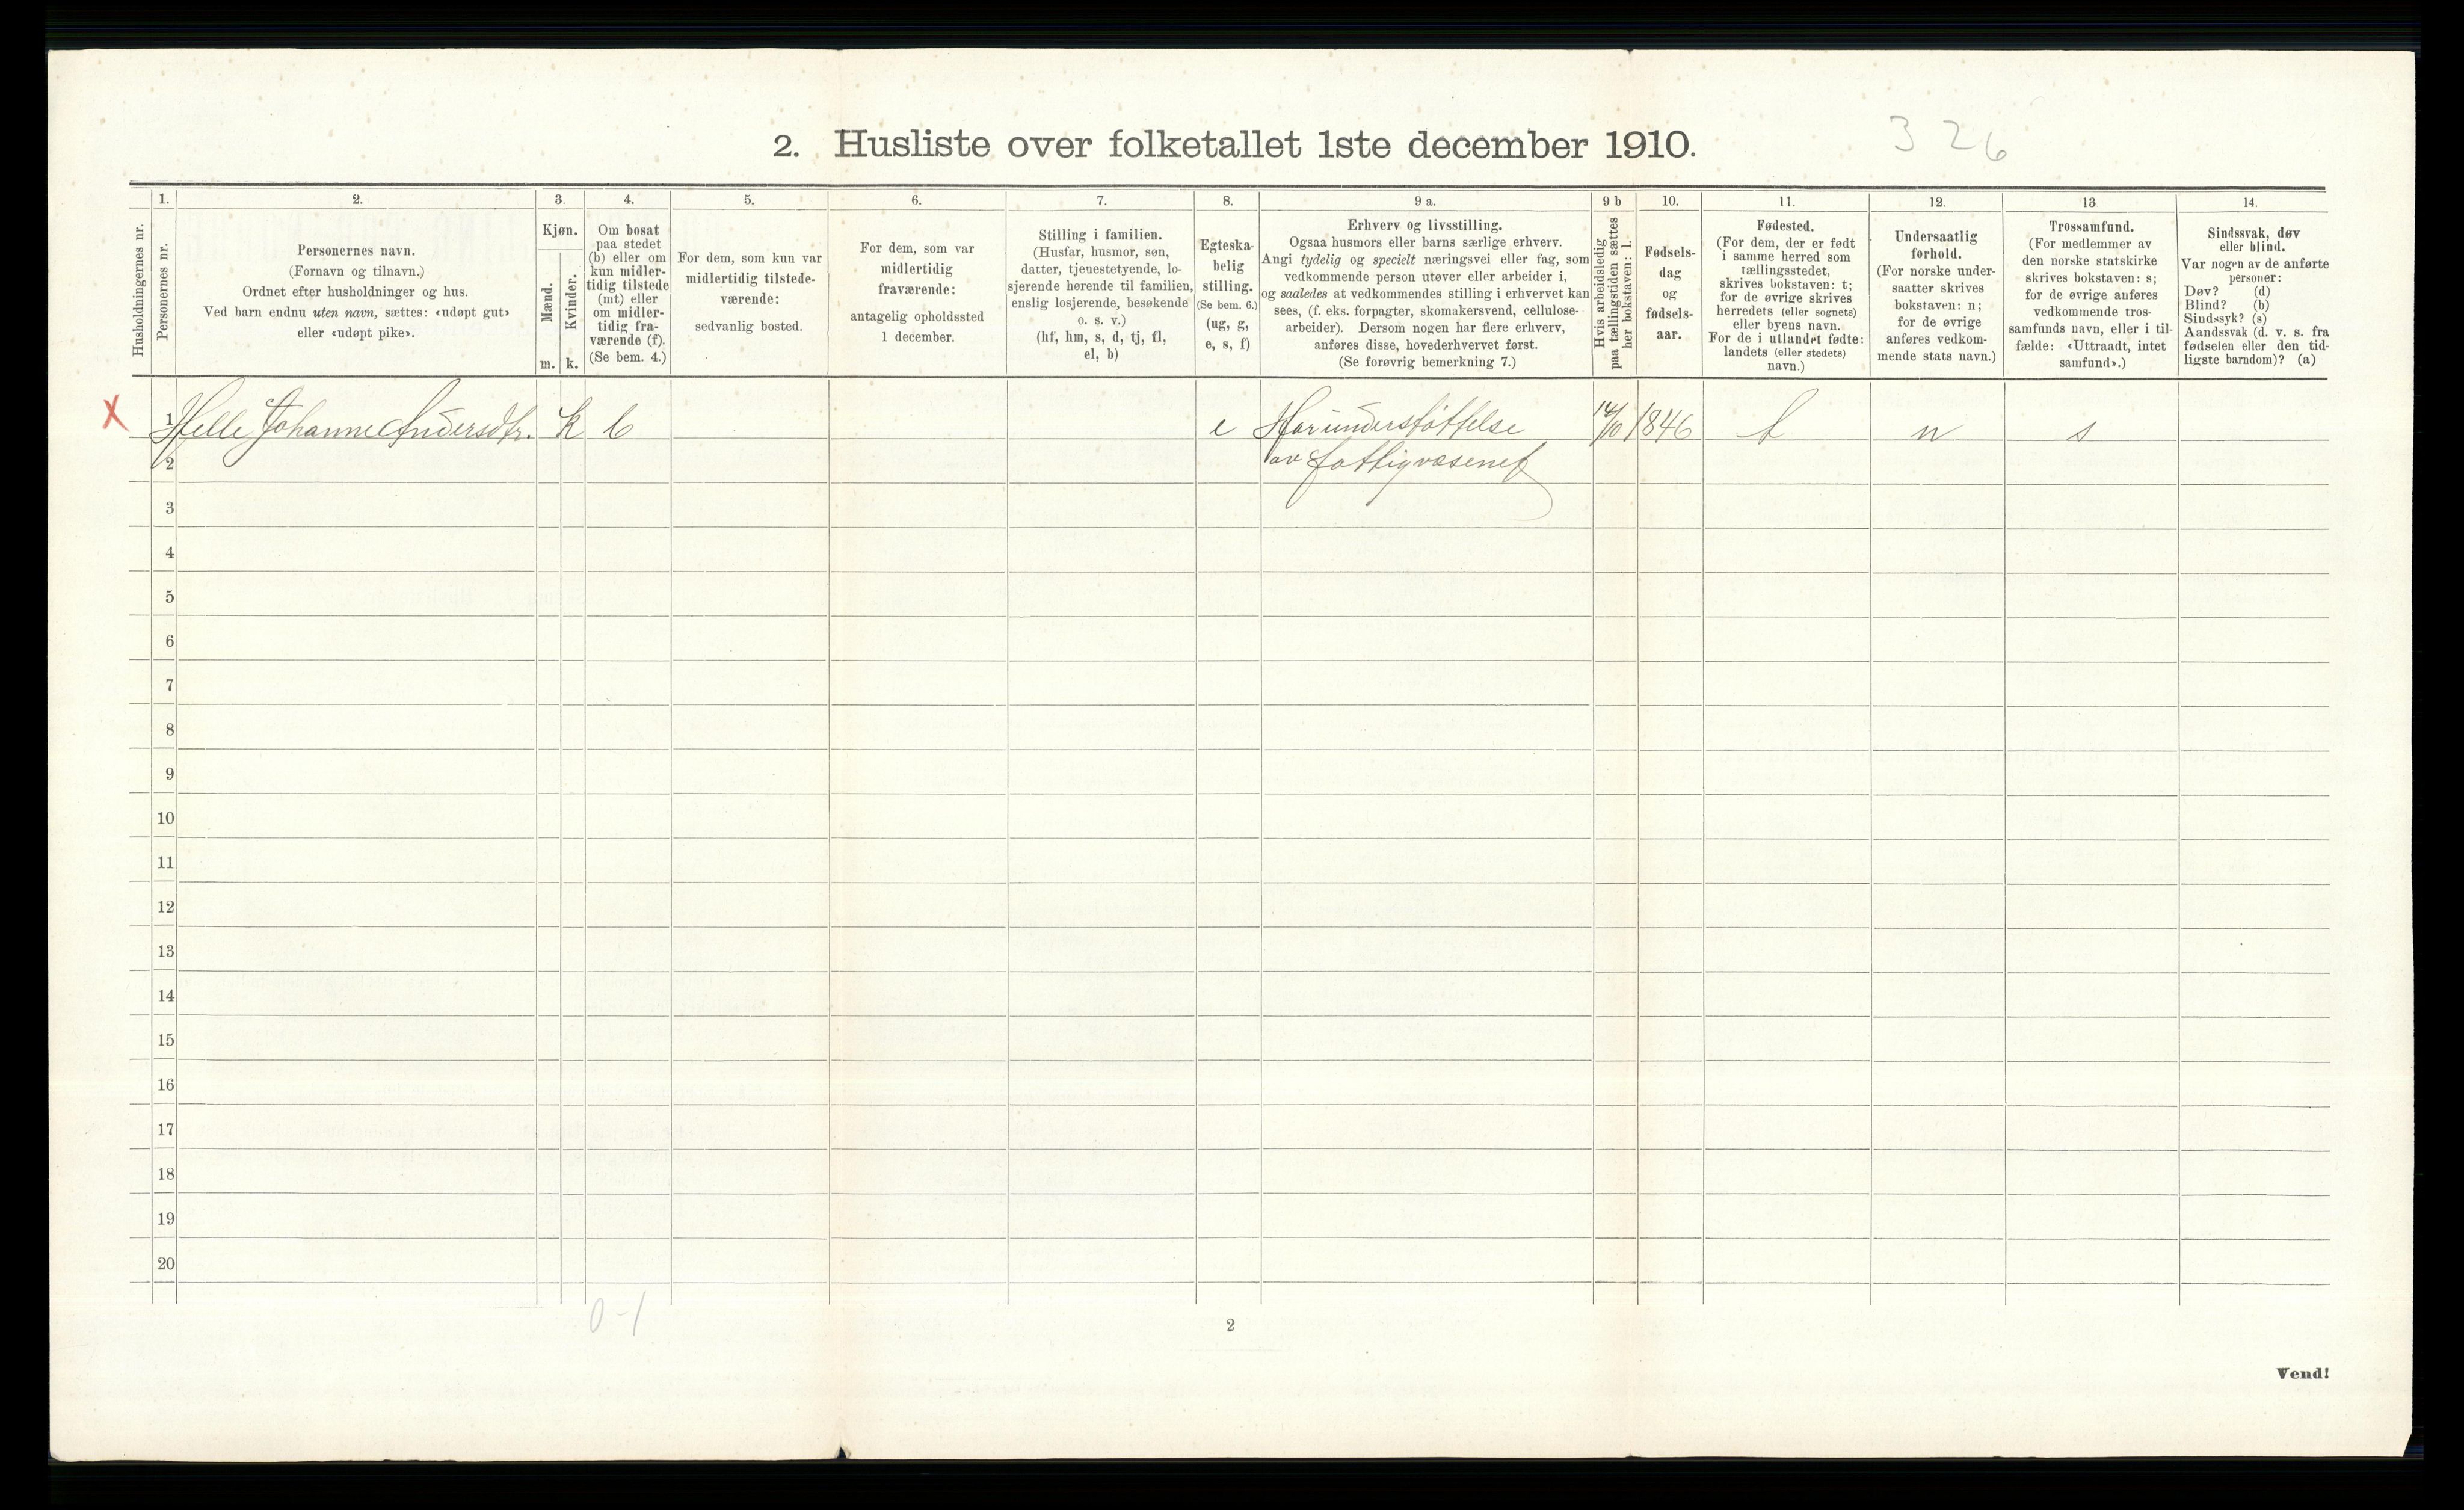 2. Husliste over folketallet 1ste december 1910.
326
Husholdningernes nr.
1.
Personernes nr.
2.
Personernes navn.
(Fornavn og tilnavn.)
Ordnet efter husholdninger og hus.
Ved barn endnu uten navn, sættes: «udøpt gut»
eller «udøpt pike».
3.
Kjøn.
Mænd.
m.
Kvinder.
k.
4.
Om bosat
paa stedet
(b) eller om
kun midler-
tidig tilstede
(mt) eller
om midler-
tidig fra-
værende (f).
(Se bem. 4.)
5.
For dem, som kun var
midlertidig tilstede-
værende:
sedvanlig bosted.
6.
For dem, som var
midlertidig
fraværende:
antagelig opholdssted
1 december.
7.
Stilling i familien.
(Husfar, husmor, søn,
datter, tjenestetyende, lo-
sjerende hørende til familien,
enslig losjerende, besøkende
o. s. v.)
(hf, hm, s, d, tj, fl,
el, b)
8.
Egteska-
belig
stilling.
(Se bem. 6.)
(ug, g,
e, s, f)
9 a.
Erhverv og livsstilling.
Ogsaa husmors eller barns særlige erhverv.
Angi tydelig og specielt næringsvei eller fag, som
vedkommende person utøver eller arbeider i,
og saaledes at vedkommendes stilling i erhvervet kan
sees, (f. eks. forpagter, skomakersvend, cellulose-
arbeider). Dersom nogen har flere erhverv,
anføres disse, hovederhvervet først.
(Se forøvrig bemerkning 7.)
9 b
Hvis arbeidsledig
paa tællingstiden sættes
her bokstaven: l.
10.
Fødsels-
dag
og
fødsels-
aar.
11.
Fødested.
(For dem, der er født
i samme herred som
tællingsstedet,
skrives bokstaven: t;
for de øvrige skrives
herredets (eller sognets)
eller byens navn.
For de i utlandet fødte:
landets (eller stedets)
navn.)
12.
Undersaatlig
forhold.
(For norske under-
saatter skrives
bokstaven: n;
for de øvrige
anføres vedkom-
mende stats navn.)
13
Trossamfund.
(For medlemmer av
den norske statskirke
skrives bokstaven: s;
for de øvrige anføres
vedkommende tros-
samfunds navn, eller i til-
fælde: «Uttraadt, intet
samfund».)
14.
Sindssvak, døv
eller blind.
Var nogen av de anførte
personer:
Døv? (d)
Blind? (b)
Sindssyk? (s)
Aandssvak (d. v. s. fra
fødselen eller den tid-
ligste barndom)? (a)
X 1 Helle Johanne Andersdtr. k b e Har understøttelse 14/10 1846 t n s
2 av fattigvæsenet
3
4
5
6
7
8
9
10
11
12
13
14
15
16
17
18
19
20
0-1
2
Vend!